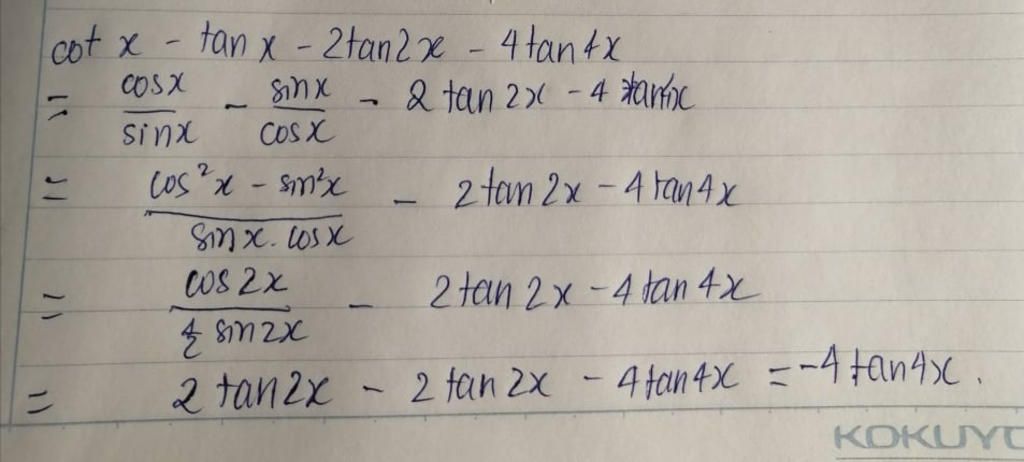 cot x - tan x - 2tan2x - 4tan4x
= cosx/sinx - sinx/cosx - 2 tan 2x - 4 tan4x
= (cos²x - sin²x)/(sinx.cosx) - 2tan2x - 4tan4x
= cos2x/(½ sin2x) - 2tan2x - 4tan4x
= 2tan2x - 2tan2x - 4tan4x = -4tan4x.
KOKUYO